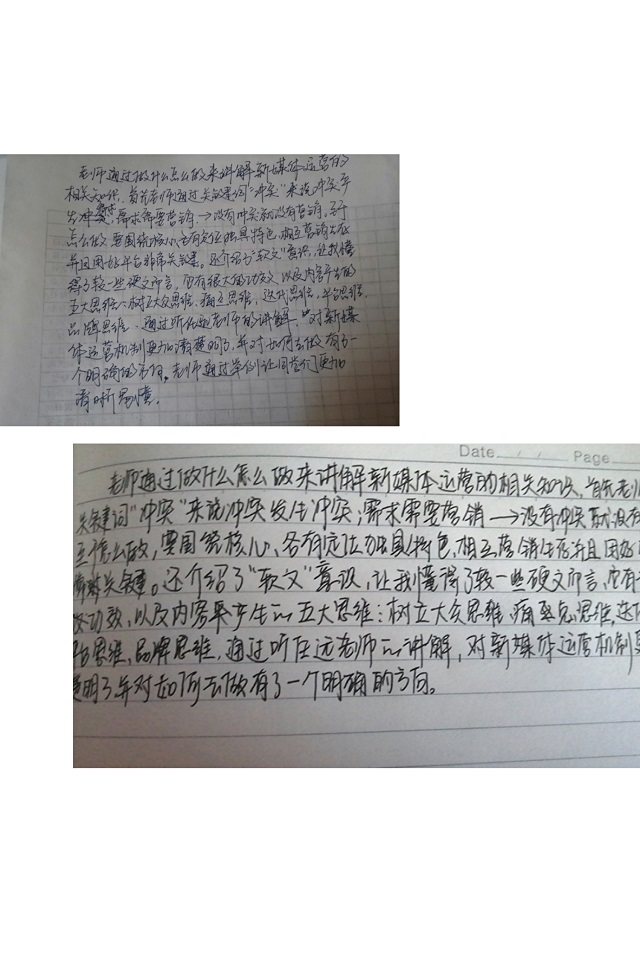 老师通过做什么怎么做来讲解新媒体运营的
相关知识,首先老师通过关键词"冲突"来说冲突产
需求需要营销→没有冲突就没有营销,至于
怎么做 要围绕核心,各有定位独具特色,相互营销生存
并且用好平台非常关键。还介绍了"软文"意识,让我懂
得了较一些硬文而言,它有很大的功效 以及内容平台的
五大思维:树立大众思维、痛点思维、迭代思维、平台思维、
品牌思维,通过听任远老师的讲解,对新媒
体运营机制更加清楚明了,并对如何去做有了一
个明确的方向。老师通过举例让同学们更加
清晰易懂。
Date / / Page
老师通过做什么怎么做来讲解新媒体运营的相关知识,首先老师
关键词"冲突"来说冲突发生冲突;需求需要营销→没有冲突就没有
至于怎么做,要围绕核心、各有定位独具特色,相互营销生存并且用好
非常关键。还介绍了"软文"意识,让我懂得了较一些硬文而言,它有
功效,以及内容平产生的五大思维:树立大众思维、痛点思维、迭代
台思维、品牌思维,通过听任远老师的讲解,对新媒体运营机制更
楚明了并对如何去做有了一个明确的方向。